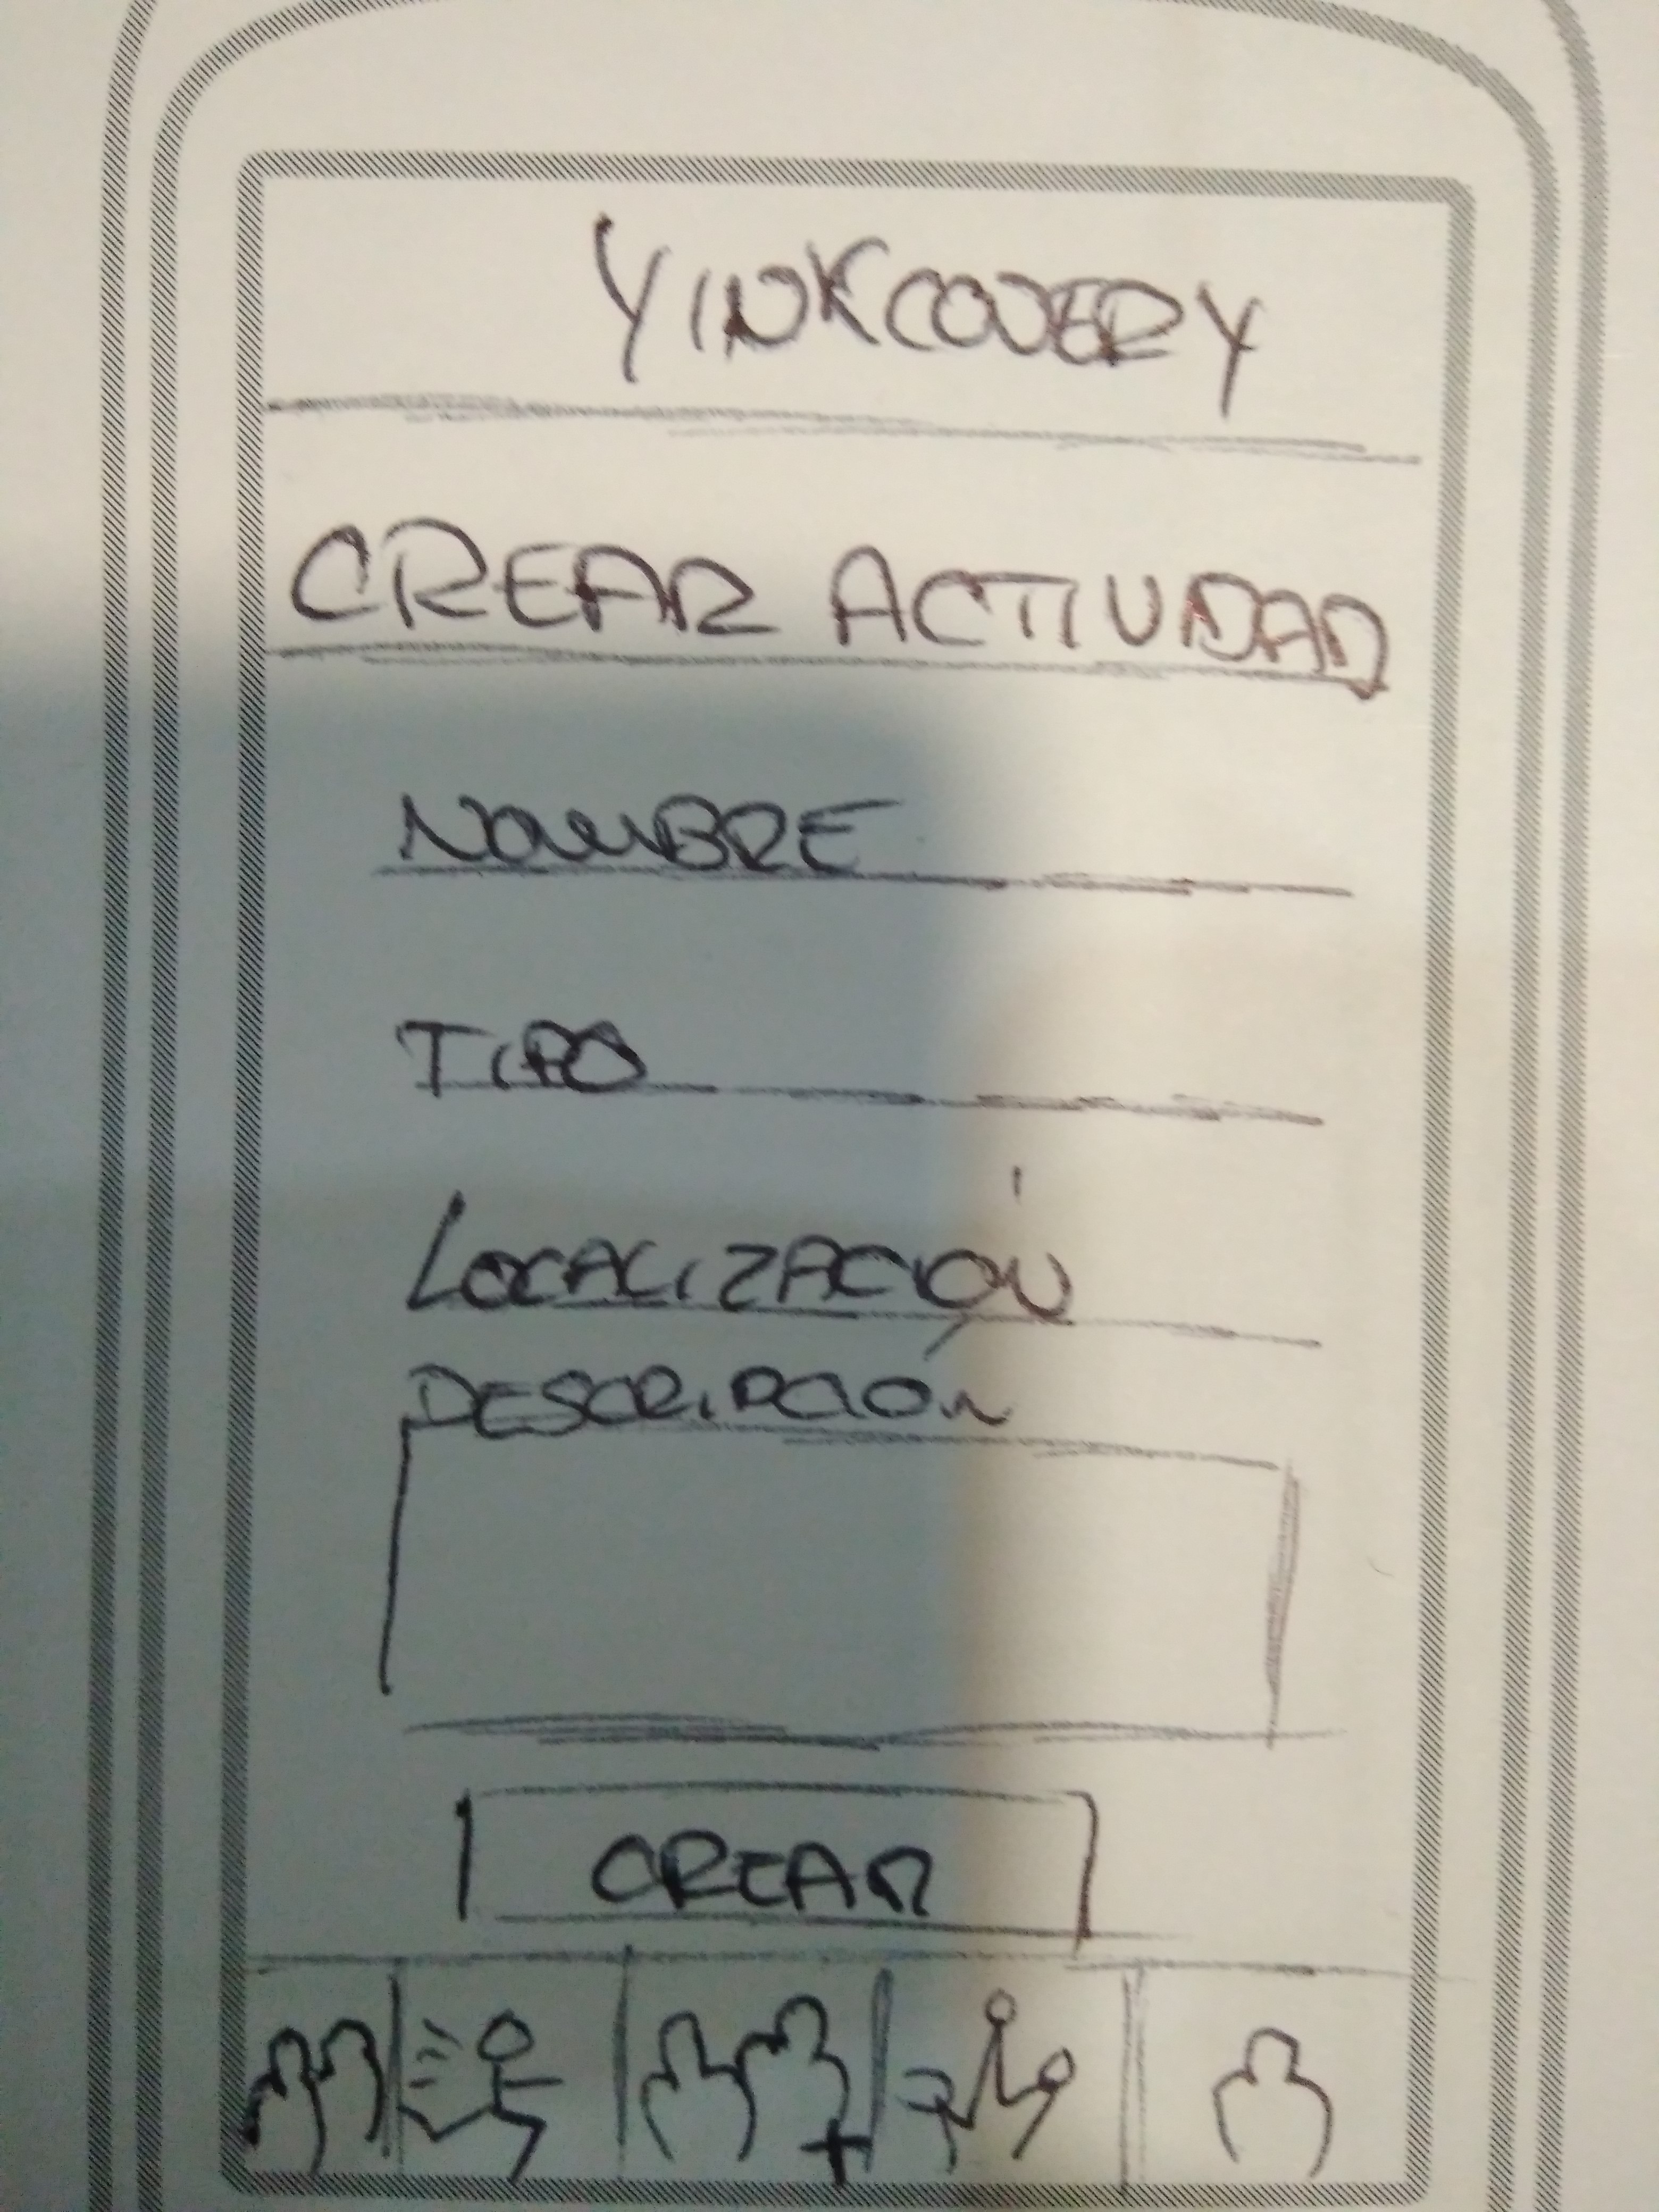 YINKCOVERY
CREAR ACTIVIDAD
NOMBRE
TIPO
LOCALIZACIÓN
DESCRIPCIÓN
CREAR